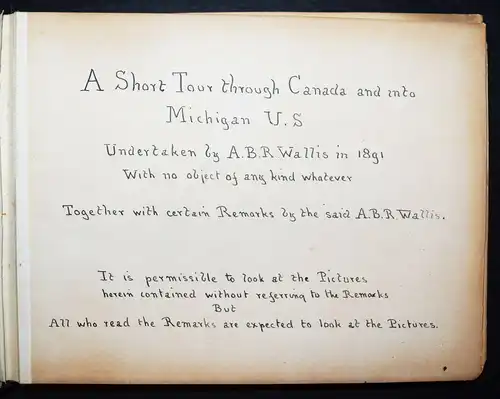 A Short Tour through Canada and into
Michigan U.S
Undertaken by A.B.R. Wallis in 1891
With no object of any kind whatever
Together with certain Remarks by the said A.B.R. Wallis.
It is permissible to look at the Pictures
herein contained without referring to the Remarks
But
All who read the Remarks are expected to look at the Pictures.